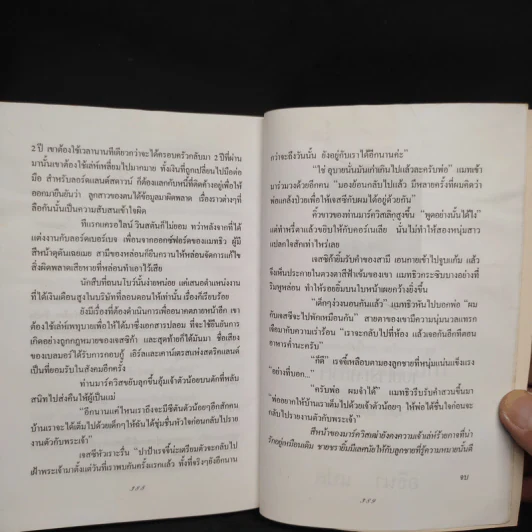 2 ปี เขาต้องใช้เวลานานทีเดียวกว่าจะได้ครอบครัวกลับมา 2 ปีที่ผ่าน
มานั้นเขาต้องใช้เล่ห์เหลี่ยมไปมากมาย ทั้งเงินที่ถูกเปลี่ยนไปมือต่อ
มือ สำหรับลอร์ดแลนด์สดาวน์ ก็ต้องแลกกับหนี้ที่ติดค้างอยู่เพื่อให้
ออกมายืนยันว่า ลูกสาวของตนได้ข้อมูลมาผิดพลาด เรื่องราวต่างๆที่
ลือกันนั้นเป็นความสับสนเข้าใจผิด
ทีแรกแคโรไลน์ วินสตันก็ไม่ยอม ทว่าหลังจากที่ได้
แต่งงานกับลอร์ดเบอร์เบจ เพื่อนจากออกซ์ฟอร์ดของแมทธิว ผู้มี
สีหน้าดุดันเฉยเมย สามีของหล่อนก็ยืนกรานให้หล่อนจัดการแก้ไข
สิ่งผิดพลาดเสียหายที่หล่อนทำเอาไว้เสีย
นักสืบที่ถนนโบว์นั้นง่ายหน่อย แค่เสนอตำแหน่งงาน
ที่ได้เงินเดือนสูงในบริษัทที่ลอนดอนให้เท่านั้น เรื่องก็เรียบร้อย
ยังมีเรื่องที่ต้องดำเนินการเพื่ออนาคตภายหน้าอีก เขา
ต้องใช้เล่ห์เพทุบายเพื่อให้ได้มาซึ่งเอกสารปลอม ที่จะใช้ยืนยันการ
เกิดอย่างถูกกฎหมายของเจสซิก้า และสุดท้ายก็ได้มันมา ชื่อเสียง
ของเบลมอร์ได้รับการกอบกู้ เอิร์ลและเคาน์เตรสแห่งสตริคแลนด์
เป็นที่ยอมรับในสังคมอีกครั้ง
ท่านมาร์ควิสขยับลุกขึ้นอุ้มเจ้าตัวน้อยบนตักที่หลับ
สนิทไปส่งคืนให้ผู้เป็นแม่
"อีกนานแค่ไหนเราถึงจะมีซีตันตัวน้อยๆอีกสักคน
บ้านเราจะได้เต็มไปด้วยเด็กๆให้ฉันได้ชุ่มชื่นหัวใจก่อนกลับไปราย
งานตัวกับพระเจ้า"
เจสซีหัวเราะรื่น "ปาป้าเรจจี้น่ะเตรียมตัวจะกลับไป
เฝ้าพระเจ้ามาตั้งแต่วันที่เราพบกันครั้งแรกแล้ว ทั้งที่จริงๆยังอีกนาน
กว่าจะถึงวันนั้น ยังอยู่กับเราได้อีกนานค่ะ"
"ไข่ อุบายนั่นมันเก่าเกินไปแล้วละครับพ่อ" แมทเข้า
มาร่วมวงด้วยอีกคน "มองย้อนกลับไปแล้ว มีหลายครั้งที่ผมคิดว่า
พ่อแกล้งป่วยไป เพื่อให้เจสซีกับผมได้อยู่ด้วยกัน"
คิ้วขาวของท่านมาร์ควิสเลิกสูงขึ้น "พูดอย่างนั้นได้ไง"
แต่ท่าหรี่ตาแล้วขยิบให้กับคอร์เนเลีย นั่นไม่ทำให้สองหนุ่มสาว
แปลกใจสักเท่าไหร่เลย
เจสซีก็ยิ้มรับคำของสามี เอนกายเข้าไปจูบแก้ม แล้ว
จึงเห็นประกายในดวงตาสีฟ้าเข้มของเขา แมทธิวกระซิบบางอย่างที่
ริมหูหล่อน ทำให้รอยยิ้มบนใบหน้าเผยกว้างยิ่งขึ้น
"เด็กๆง่วงนอนกันแล้ว" แมทธิวหันไปบอกพ่อ "ผม
กับเจสซีจะไปพักเหมือนกัน" สายตาของเขามีความนุ่มนวลแทรก
เจือมากับความเร่าร้อน "เราจะกลับไปที่ห้อง แล้วเจอกันอีกทีตอน
อาหารค่ำนะครับ"
"ก็ดี" เรจจี้เหลือบตามองลูกชายที่หนุ่มแน่นแข็งแรง
"อย่างที่บอก..."
"ครับพ่อ ผมจำได้" แมทธิวรีบรับคำสวนขึ้นมา
"พ่ออยากให้บ้านเราเต็มไปด้วยเจ้าตัวน้อยๆ ให้พ่อได้ชื่นใจก่อนจะ
กลับไปรายงานตัวกับพระเจ้า"
สีหน้าของมาร์ควิสเฒ่ายังคงความเจ้าเล่ห์ร้ายกาจที่น่า
รักอยู่เหมือนเดิม ชายชรายิ้มมีเลศนัยให้กับลูกชายที่รู้ความหมายนั้นดี
จบ